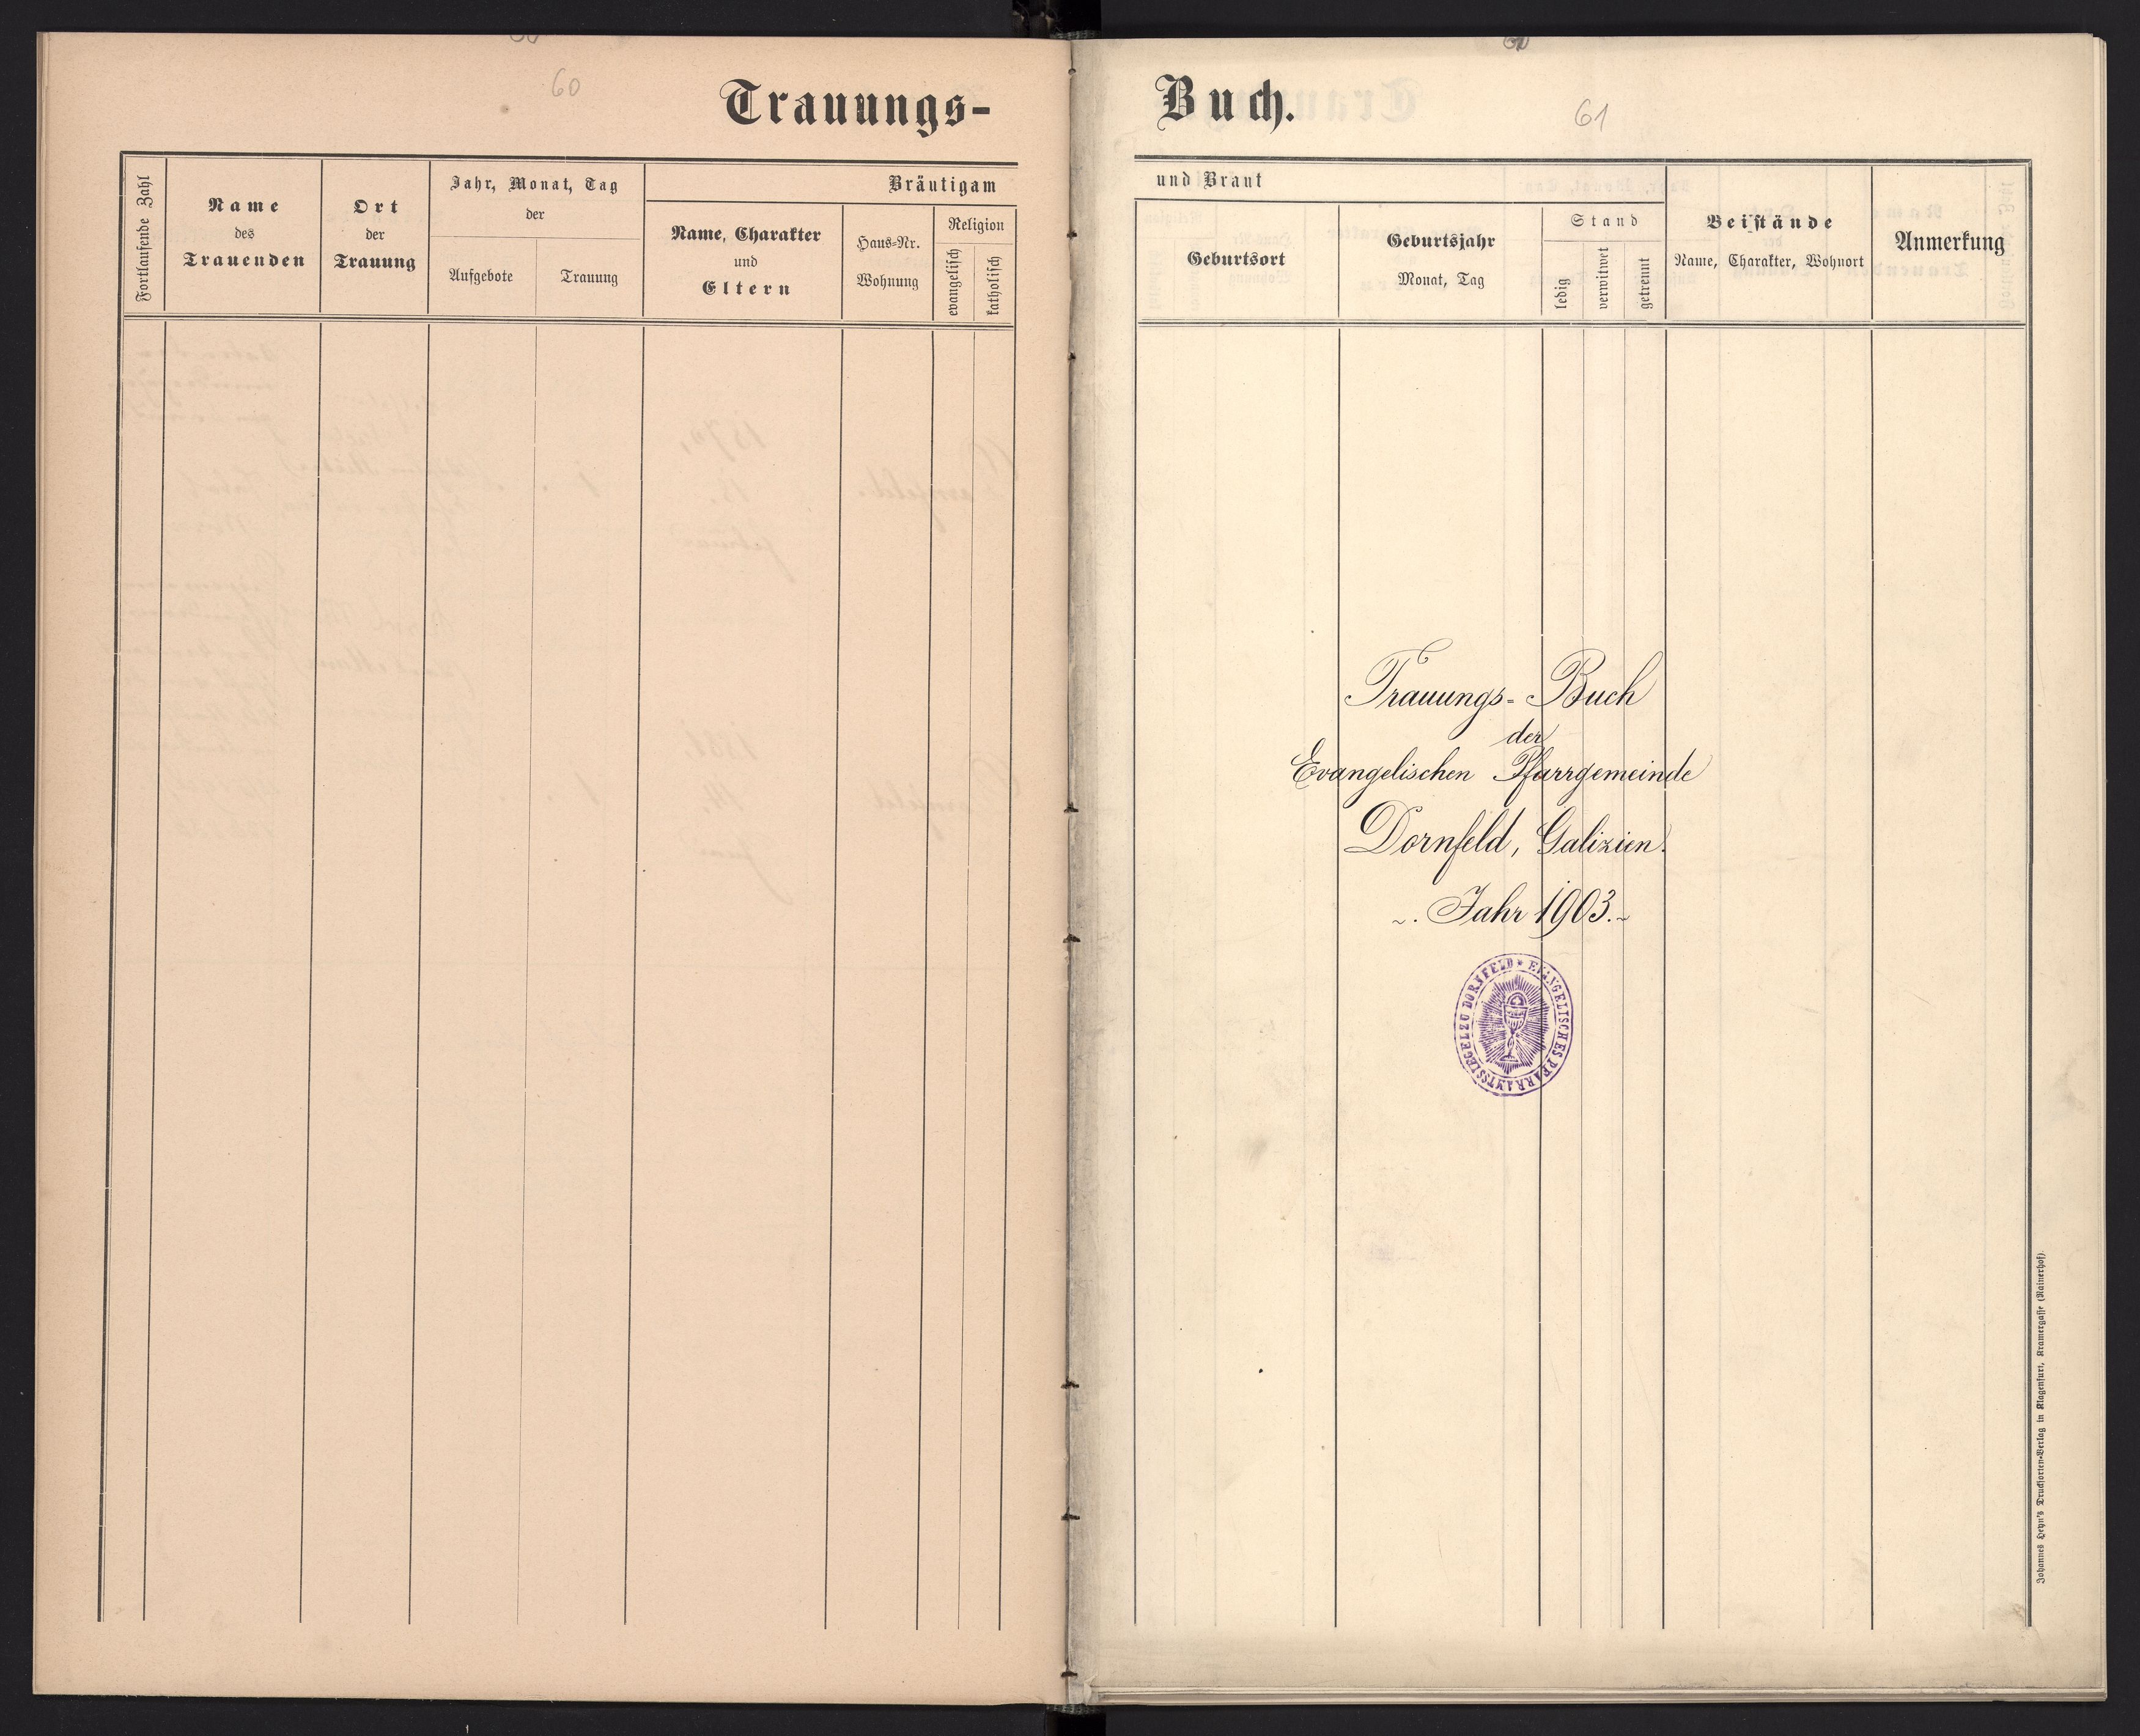 60
Trauungs-
Fortlaufende Zahl
Name
des
Trauenden
Ort
der
Trauung
Jahr, Monat, Tag
der
Aufgebote
Trauung
Bräutigam
Name, Charakter
und
Eltern
Haus-Nr.
Wohnung
Religion
evangelisch
katholisch
Buch.
61
und Braut
Geburtsort
Geburtsjahr
Monat, Tag
Stand
ledig
verwitwet
getrennt
Beistände
Name, Charakter, Wohnort
Anmerkung
Trauungs-Buch
der
Evangelischen Pfarrgemeinde
Dornfeld, Galizien.
~. Jahr 1903. ~
EVANGELISCHES PFARRAMTSSIEGEL ZU DORNFELD
Johannes Heyn's Drucksorten-Verlag in Klagenfurt, Kramergasse (Rainerhof).